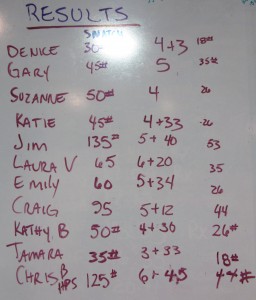 RESULTS
SNATCH
DENICE 30# 4+3 18#
GARY 45# 5 35#
SUZANNE 50# 4 26
KATIE 45# 4+33 26
Jim 135# 5+40 53
LAURA V 65 6+20 35
Emily 60 5+34 26
CRAIG 95 5+12 44
KATHY B 50# 4+30 26#
TAMARA 35# 3+33 18#
CHRIS B 125# 6+45 44#
HPS